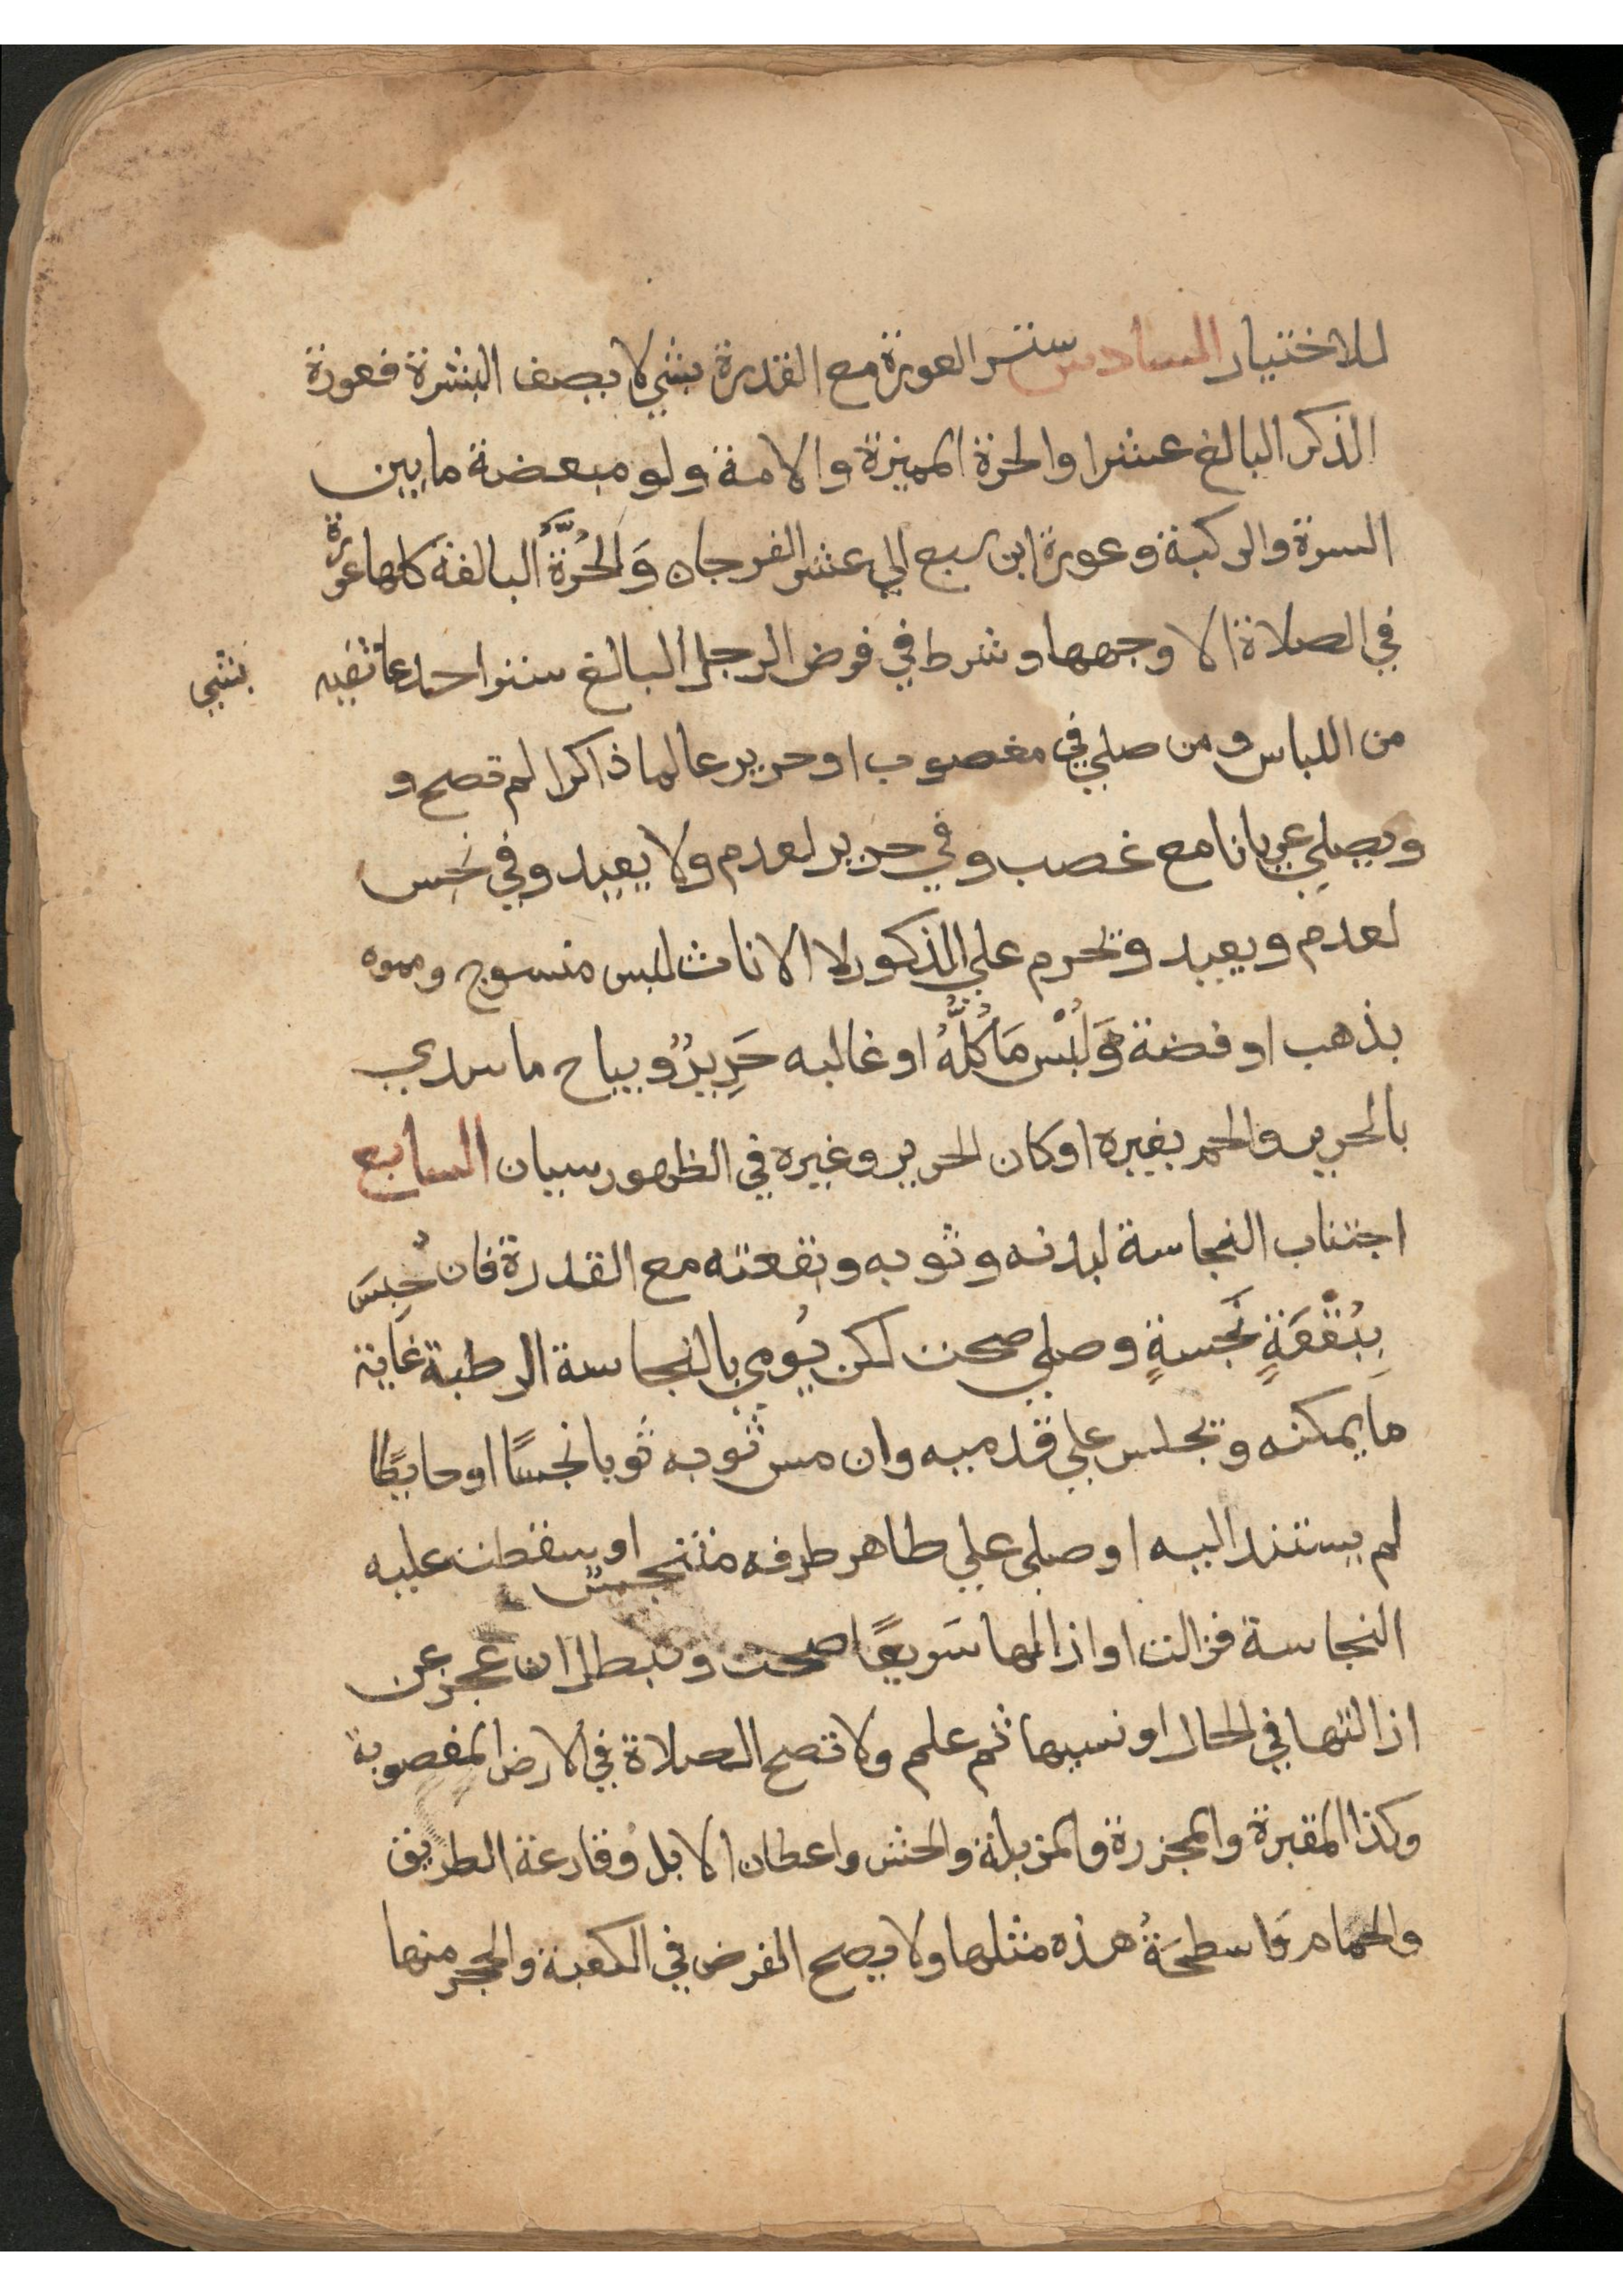 للاختيار السادس ستر العورة مع القدرة بشي لا يصف البشرة فعورة
الذكر البالغ عشرا والحرة المميزة والامة ولو مبعضة ما بين
السرة والركبة وعورة ابن سبع الي عشر الفرجان وَالحُرَّةُ البالغة كلها عورة
في الصلاة الا وجهها وشرط في فرض الرجل البالغ ستر احد عاتقيه بشي
من اللباس ومن صلي في مغصوب او حرير عالما ذاكرا لم تصح و
ويصلي عريانا مع غصب وفي حرير لعدم ولا يعيد وفي نجس
لعدم ويعيد ويحرم علي الذكور لا الاناث لبس منسوج ومموه
بذهب او فضة وَلُبْس مَا كُلُّهُ او غالبه حَرِيرٌ ويباح ما سدي
بالحرير والحم بغيره او كان الحرير وغيره في الظهور سيان السابع
اجتناب النجاسة لبدنه وثوبه وبقعته مع القدرة فان حُبِسَ
بِبُقْعَةٍ نَجِسةٍ وصلي صحت لكن يُومي بالنجاسة الرطبة غاية
ما يمكنه ويجلس علي قدميه وان مس ثوبه ثوبا نجسًا او حايطًا
لم يستند اليه او صلي علي طاهر طرفه متنجس او سقطت عليه
النجاسة فزالت او ازالها سَريعًا صحت وتبطل ان عجز عن
ازالتها في الحال او نسيها ثم علم ولا تصح الصلاة في الارض المغصوبة
وكذا المقبرة والمجزرة والمزبلة والحش واعطان الابل وقارعة الطريق
والحمام وَاسطحَةُ هذه مثلها ولا يصح الفرض في الكعبة والحجر منها